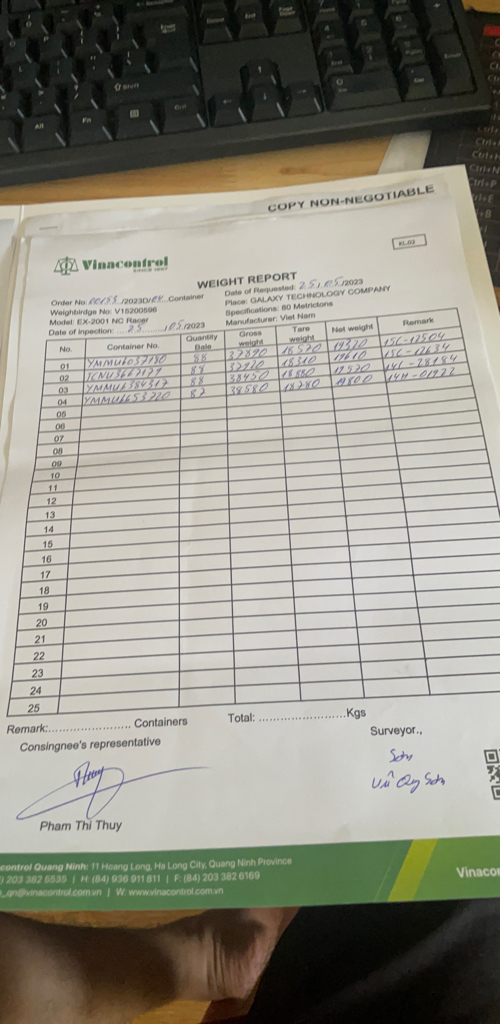 COPY NON-NEGOTIABLE
XL.02
Vinacontrol
SINCE 1957
WEIGHT REPORT
Order No: /2023D/ Container Date of Requested: 25/05/2023
Weighbridge No: V15200596 Place: GALAXY TECHNOLOGY COMPANY
Model: EX-2001 NC Racer Specifications: 60 Metrictons
Date of inpection: 25/05/2023 Manufacturer: Viet Nam
No. Container No. Quantity Bale Gross weight Tare weight Net weight Remark
01 88 37890 18570 19320 15C-12504
02 88 37920 18310 19610 15C-12634
03 88 38450 18880 19570
04 YMMU6653720 82 38580 18780 19800 14H-01922
05
06
07
08
09
10
11
12
13
14
15
16
17
18
19
20
21
22
23
24
25
Remark:........................ Containers Total: .........................Kgs
Consingnee's representative Surveyor.,
Thuy Sơn
Vũ Quý Sơn
Pham Thi Thuy
control Quang Ninh: 11 Hoang Long, Ha Long City, Quang Ninh Province
203 382 6835 | H: (84) 936 911 811 | F: (84) 203 382 6169
_qn@vinacontrol.com.vn | W: www.vinacontrol.com.vn
Vinaco
Shift
Alt
Fn
Ctrl